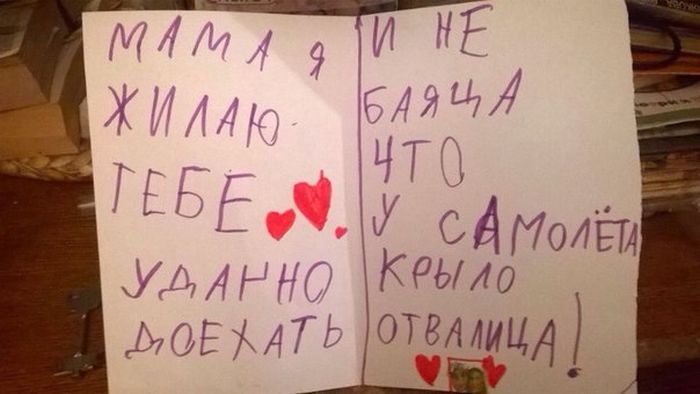 МАМА Я
ЖИЛАЮ
ТЕБЕ
УДАЧНО
ДОЕХАТЬ
И НЕ
БАЯЦА
ЧТО
У САМОЛЁТА
КРЫЛО
ОТВАЛИЦА!